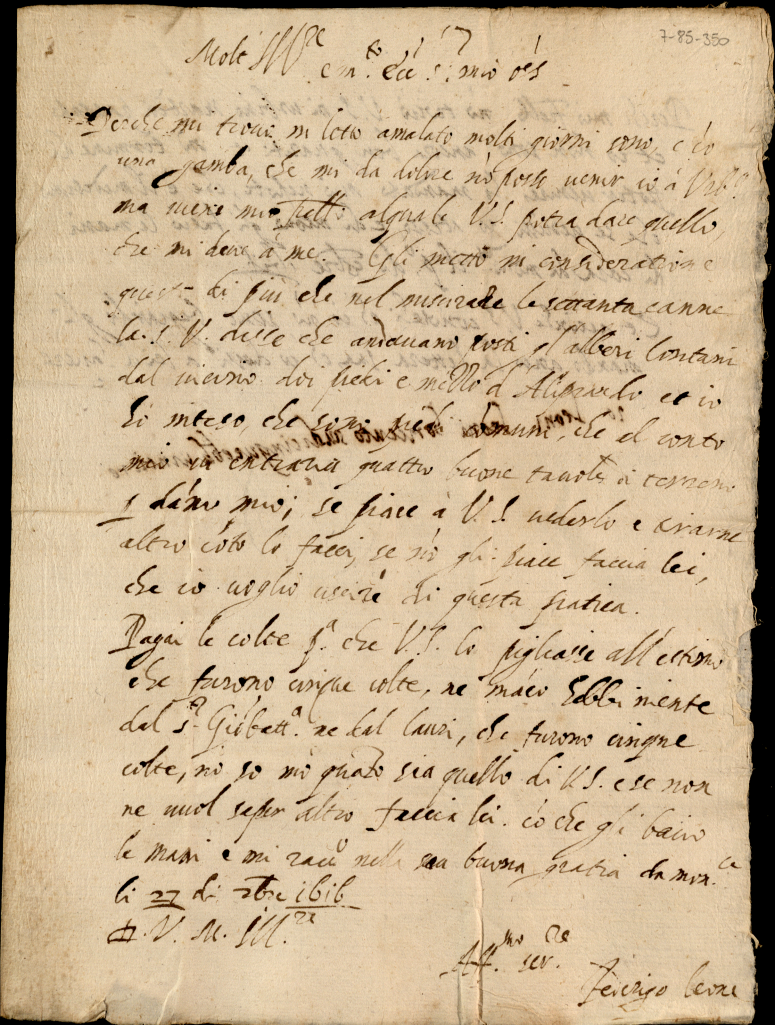 7-85-350
Molt' Ill.re
e m.to ecc.te s.r mio oss
Perche mi trovo in letto amalato molti giorni sono, e cō
una gamba, che mi da dolore nō posso venir io à Urb.o
ma viene mio fr̄ello alquale V.S. potra dare quello,
che mi deve à me. Gli metto in consideratione
questo di piu che nel misurare le settanta canne
la S.V. disse che andavano posti gl'alberi lontani
dal vicino doi piedi e mezzo d'
ho inteso, che sono piedi communi, che al conto
mio ci entraria quattro buone tavole di terreno
p dāno mio; se piace à V.S. vederlo e tirarne
altro cōto lo facci, se nō gli piace faccia lei,
che io voglio uscire di questa pratica.
Pagai le colte p.a che V.S. lo pigliasse all'estimo
che furono cinque colte, ne māco hebbi niente
dal s.r Giōbatt.a ne dal lauri, che furono cinque
colte, nō so mo quāto sia quello di V.S. e se non
ne vuol saper altro faccia lei. cō che gli bacio
le mani e mi racc.o nella sua buona gratia da
li 27 di 7bre 1616
D. V. S. Ill.re
Aff.mo ser.re
Federigo Leone